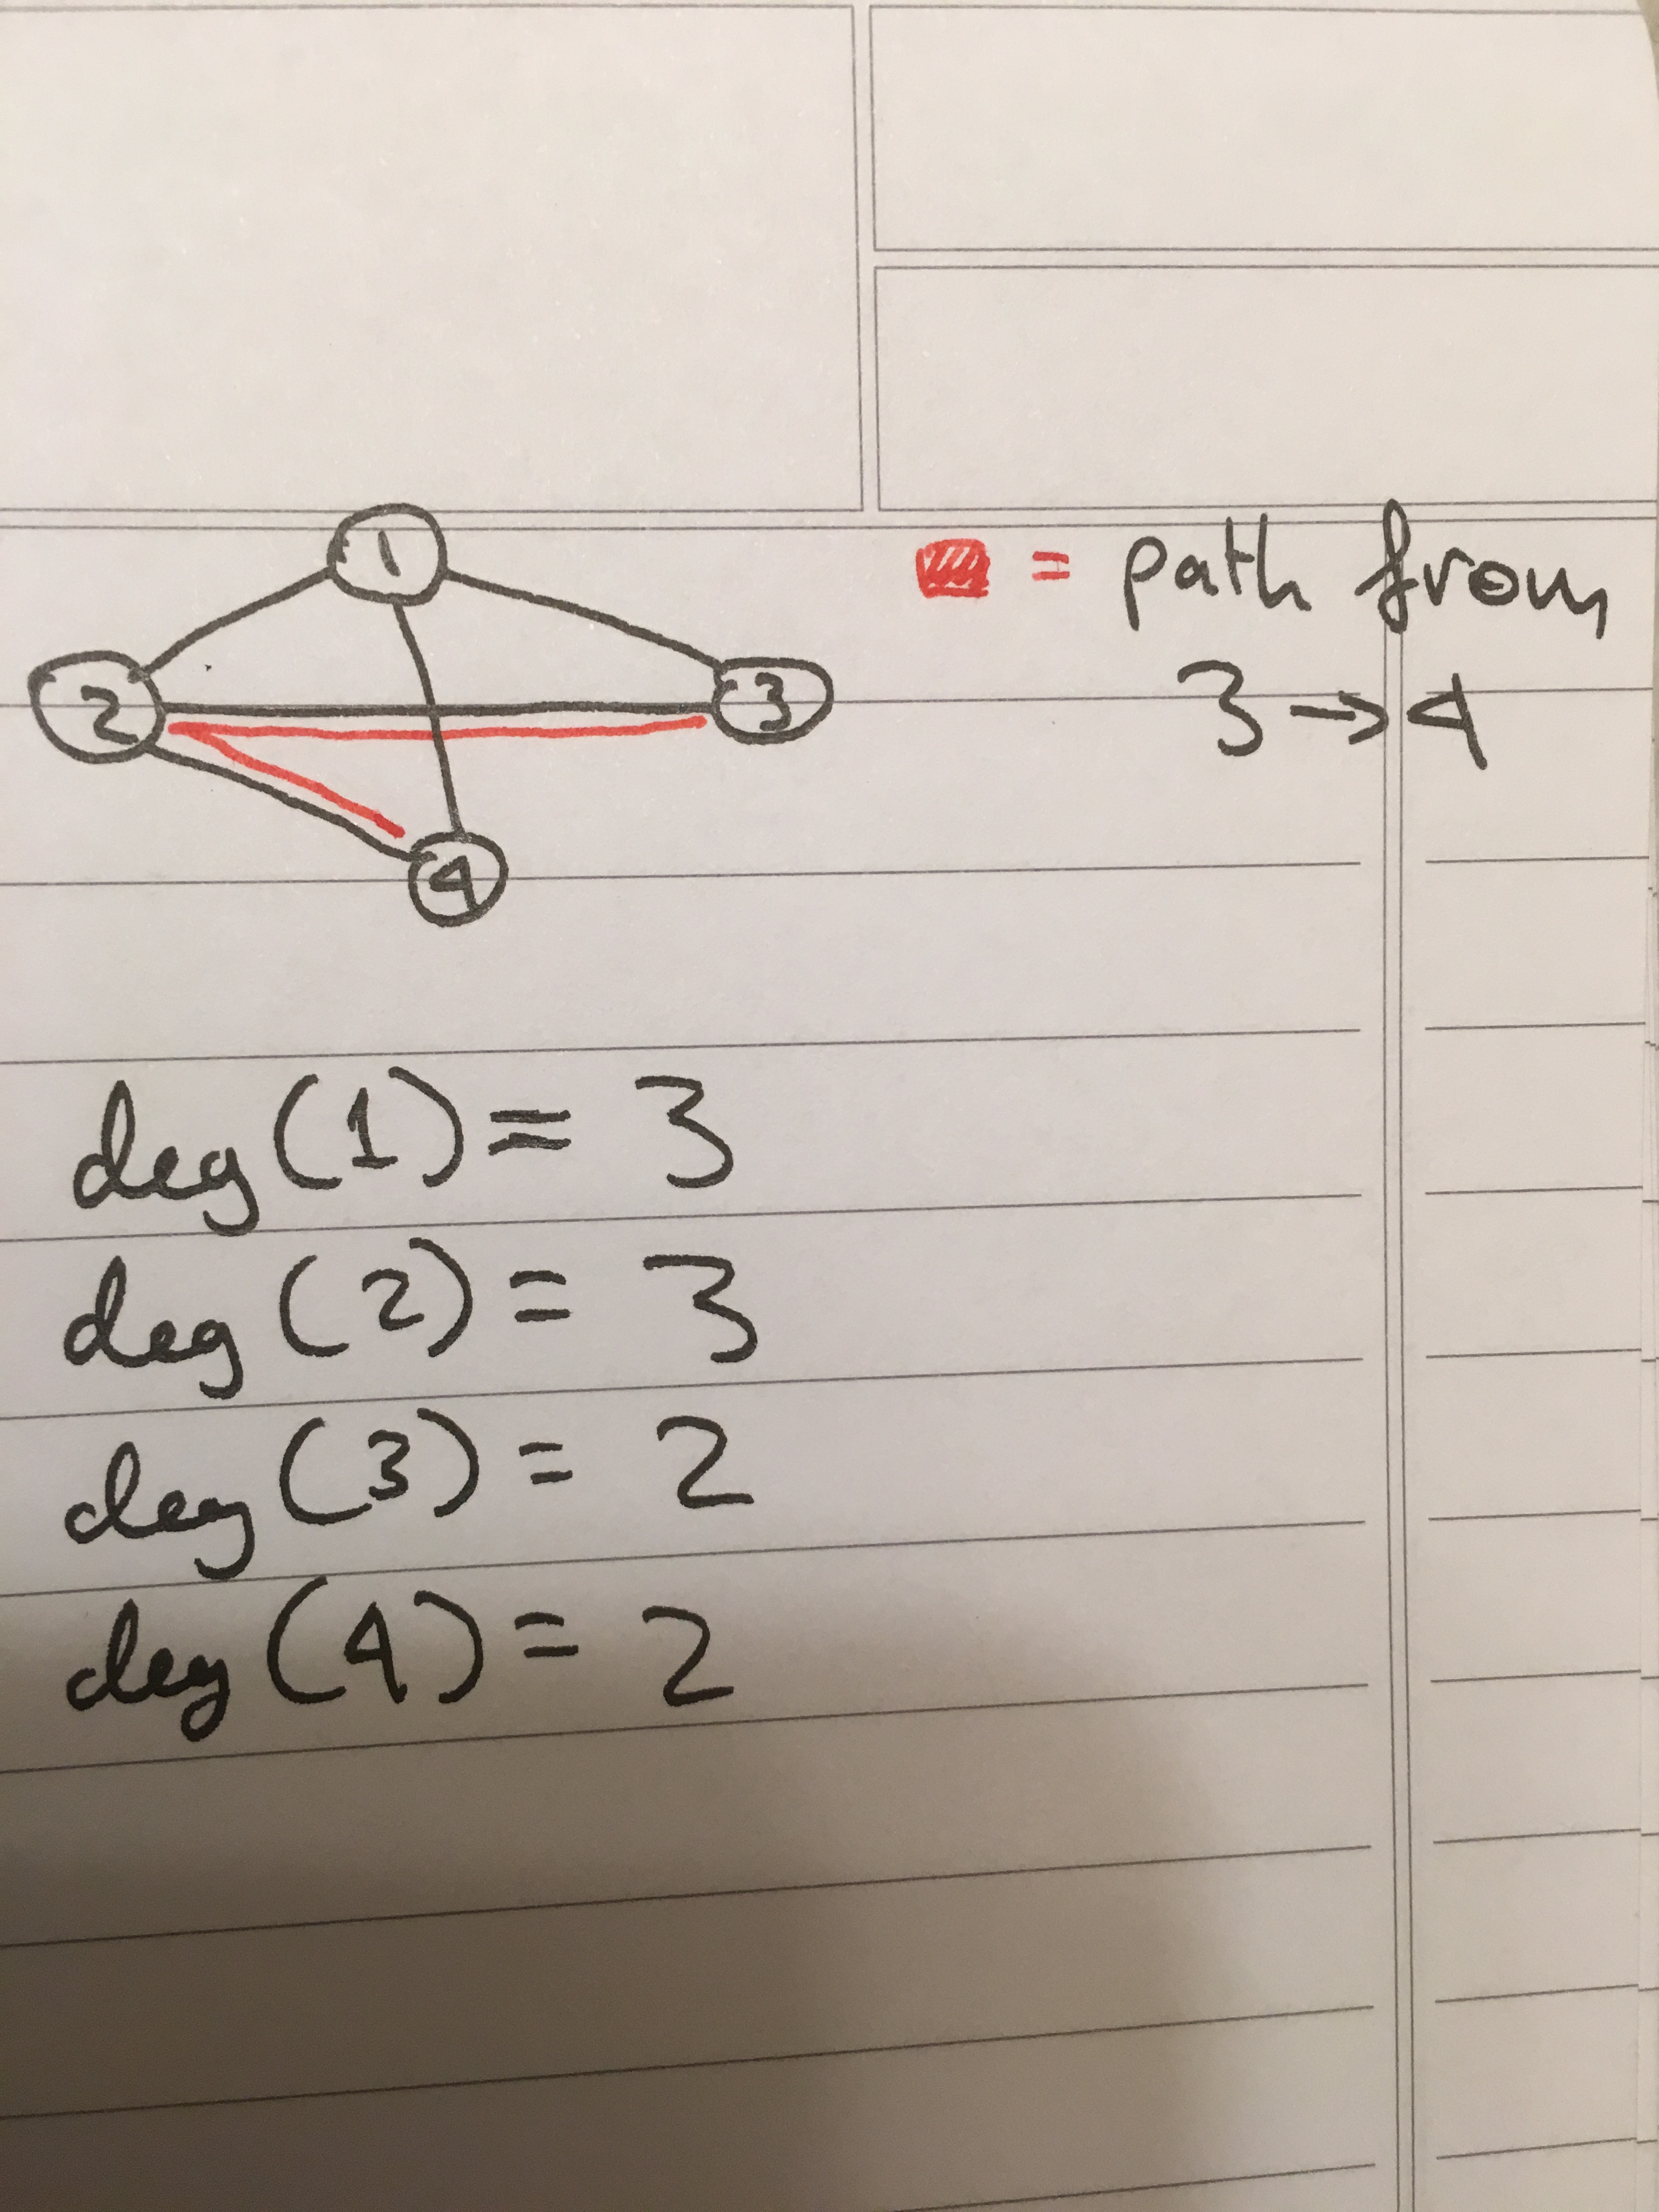 1
= path from
2
3
3 → 4
4
deg(1) = 3
deg(2) = 3
deg(3) = 2
deg(4) = 2